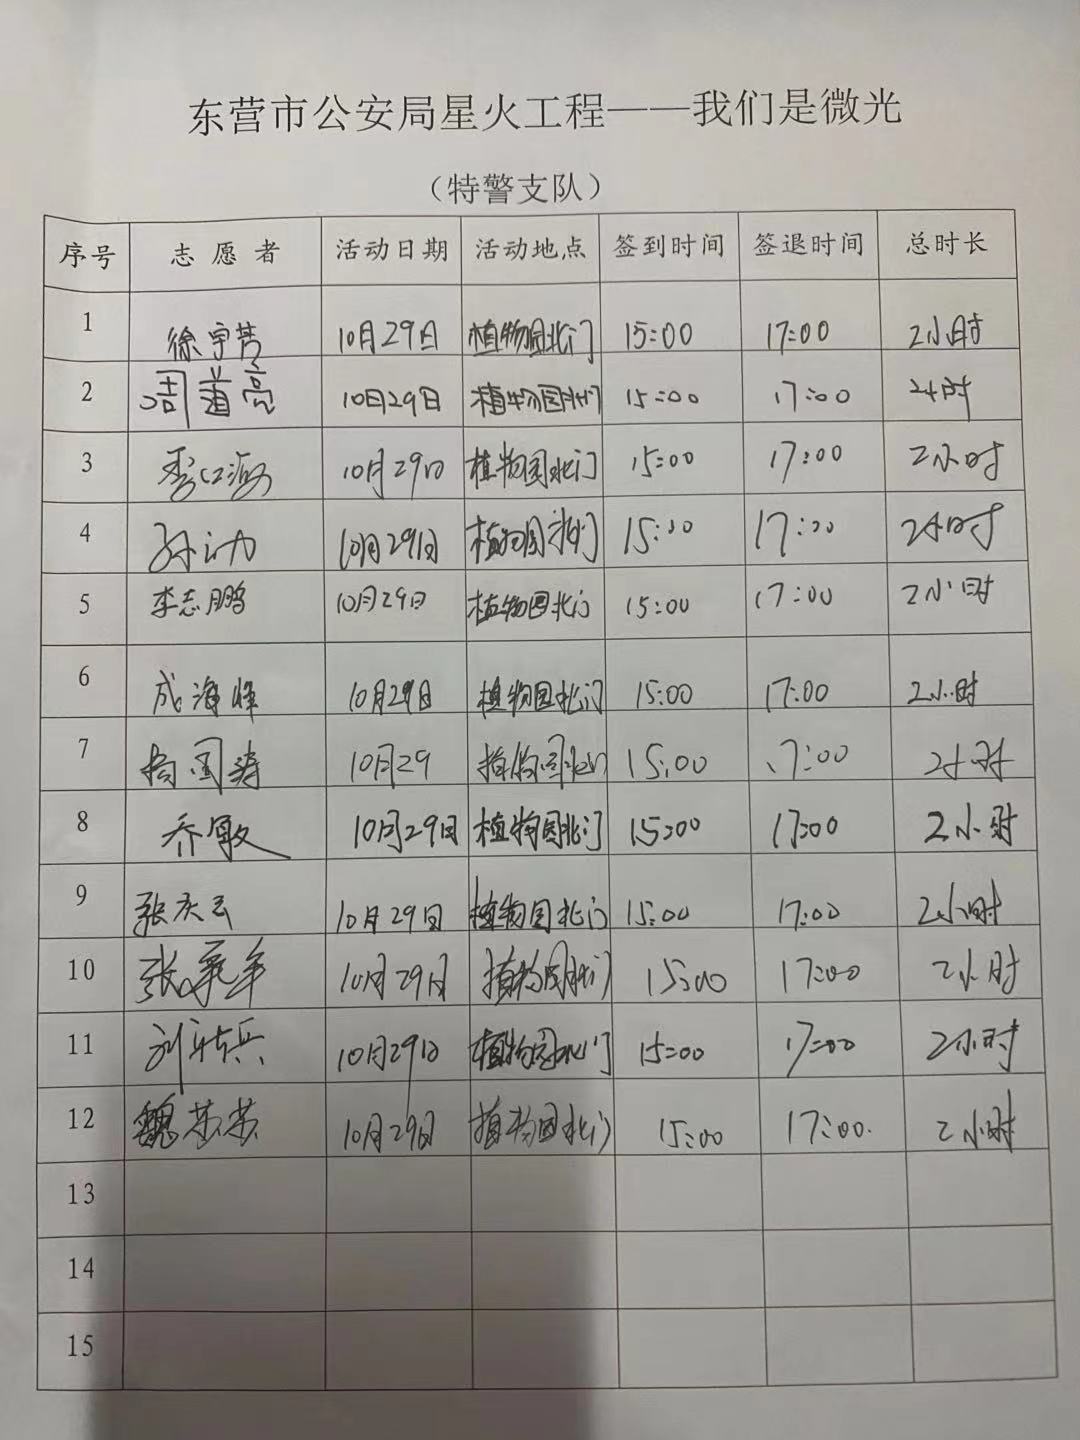 东营市公安局星火工程——我们是微光
（特警支队）
序号 志愿者 活动日期 活动地点 签到时间 签退时间 总时长
1 徐宇芳 10月29日 植物园北门 15:00 17:00 2小时
2 周道亮 10月29日 植物园北门 15:00 17:00 2小时
3 李江海 10月29日 植物园北门 15:00 17:00 2小时
4 10月29日 植物园北门 15:00 17:00 2小时
5 李志鹏 10月29日 植物园北门 15:00 17:00 2小时
6 成海峰 10月29日 植物园北门 15:00 17:00 2小时
7 10月29 植物园北门 15:00 17:00 2小时
8 乔敏 10月29日 植物园北门 15:00 17:00 2小时
9 张庆云 10月29日 植物园北门 15:00 17:00 2小时
10 10月29日 植物园北门 15:00 17:00 2小时
11 10月29日 植物园北门 15:00 17:00 2小时
12 10月29日 植物园北门 15:00 17:00 2小时
13
14
15